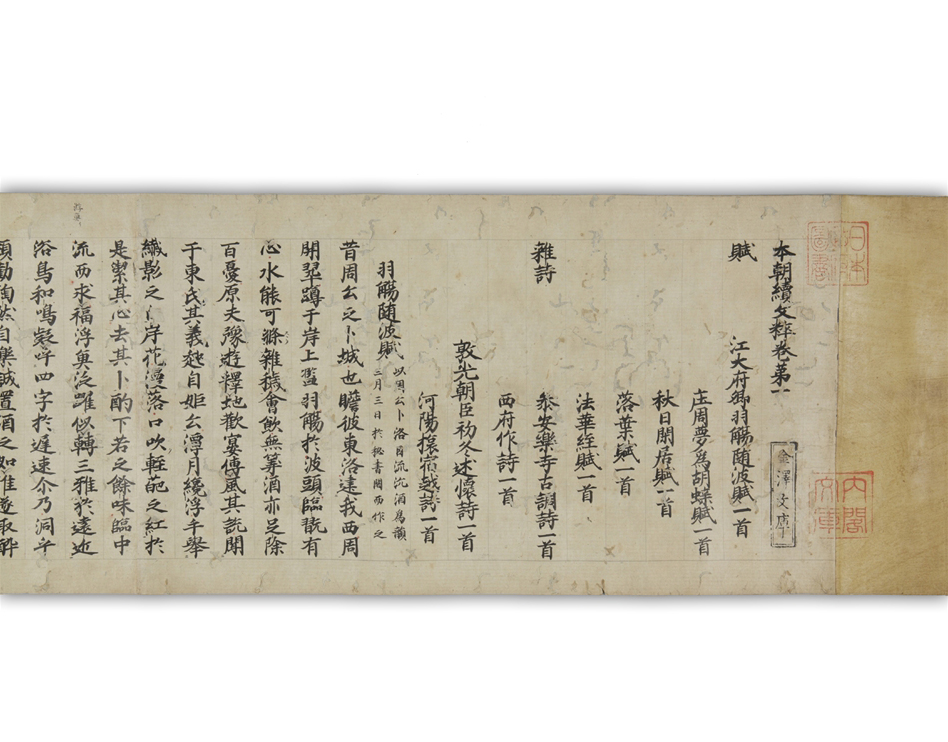 日本
政府
圖書
内閣
文庫
本朝續文粹卷第一
金澤文庫
賦
江大府卿羽觴随波賦一首
庄周夢為胡蝶賦一首
秋日閑居賦一首
落葉賦一首
法華經賦一首
雜詩
叅安樂寺古調詩一首
西府作詩一首
敦光朝臣初冬述懷詩一首
河陽旅宿越詩一首
羽觴随波賦
以周公卜洛因流汎酒為韻
三月三日於秘書閣西作之
昔周公之卜城也瞻彼東洛遠我西周
開翠蹲于岸上盃羽觴於波頭臨翫有
心水能可滌雜穢會飲無筭酒亦足除
百憂原夫豫遊釋地歡宴傳風其訛閇
于東民其義趍自姫公潭月纔浮手舉
纖影之岸花漫落口吹輕葩之紅於
是絜其心去其卜酌下若之餘味臨中
流而求福浮奠泛雖似轉三雅於遠近
浴鳥和鳴疑吁四字於遅速介乃洞乎
頭動陶然自樂誠置酒之如淮遂取醉